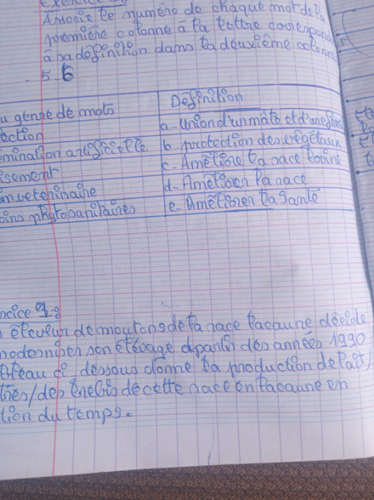 Associe le numéro de chaque mot de la
première colonne à la lettre correspond
à sa définition dans la deuxième colonne
5-6
u genre de mots Définition
ection a- Union d'un mâle et d'une
émination artificielle b. protection des végétaux
isement c- Améliore la race bovine
vétérinaire d- Améliorer la race
ins phytosanitaires e- Améliorer la Santé
cice 7.8
éleveur de moutons de la race Lacaune décide
moderniser son élévage à partir des années 1990
dessous donne la production de lait
des brebis de cette race en Lacaune en
tion du temps.